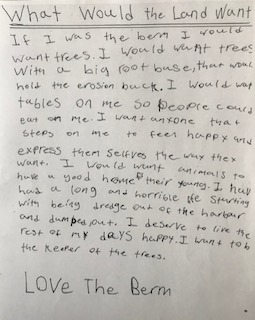 What Would the Land Want
If I was the berm I would
want trees. I would want trees
with a big root base, that woul
hold the erosion back. I would wan
tables on me so people could
eat on me. I want anyone that
steps on me to feel happy and
express them selfves the way they
want. I would want animals to
have a good home their young. I hav
had a long and horrible life starting
with being dredge out of the harbour
and dumped out. I deserve to live the
rest of my days happy. I want to b
the keeper of the trees.
LOVE The Berm